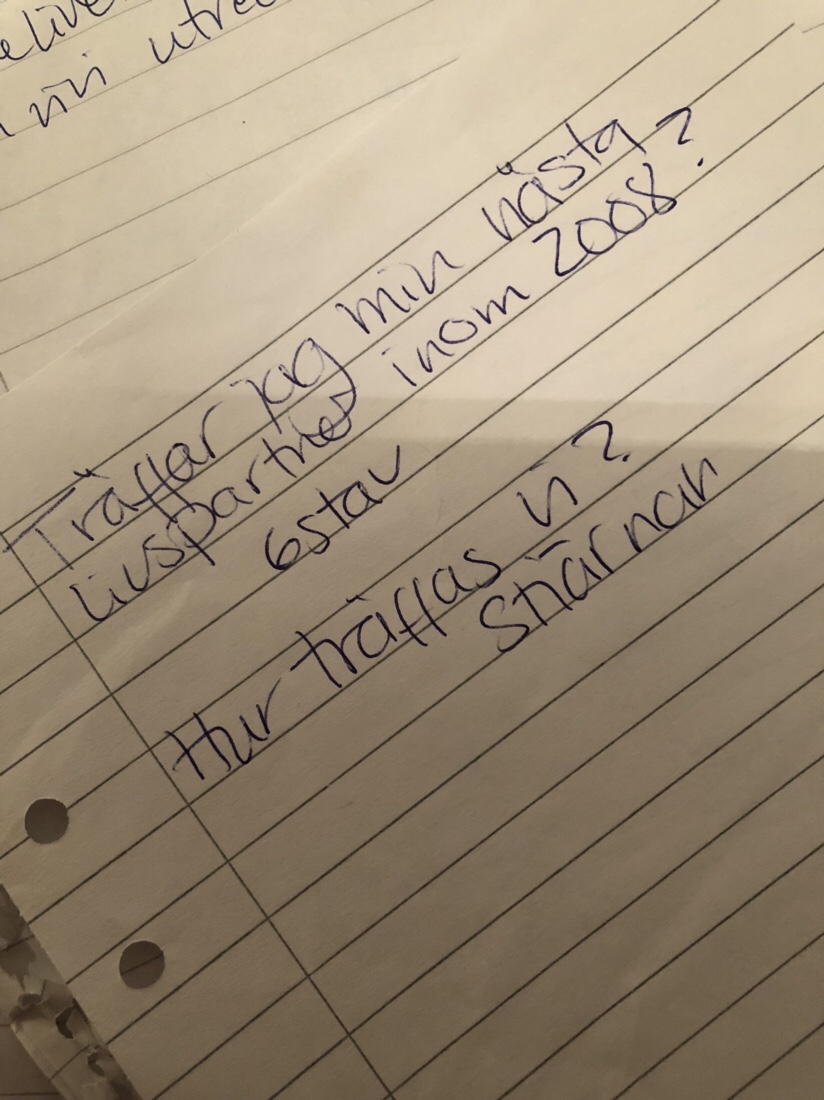 vin utre
Träffar jag min nästa
livspartner inom 2008?
6stav
Hur träffas vi?
Stjärnan